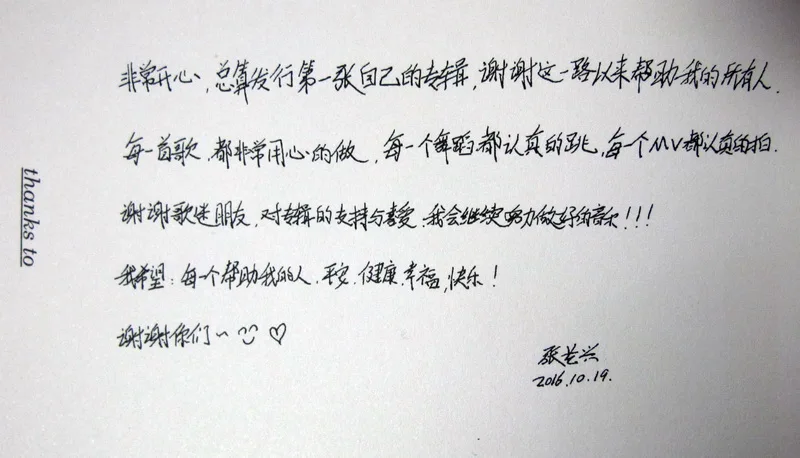 thanks to
非常开心，总算发行第一张自己的专辑，谢谢这一路以来帮助我的所有人．
每一首歌，都非常用心的做，每一个舞蹈都认真的跳，每一个MV都认真的拍．
谢谢歌迷朋友，对专辑的支持与喜爱．我会继续努力做好的音乐！！！
我希望：每一个帮助我的人．平安．健康．幸福，快乐！
谢谢你们~ ☺ ♡
张艺兴
2016.10.19.